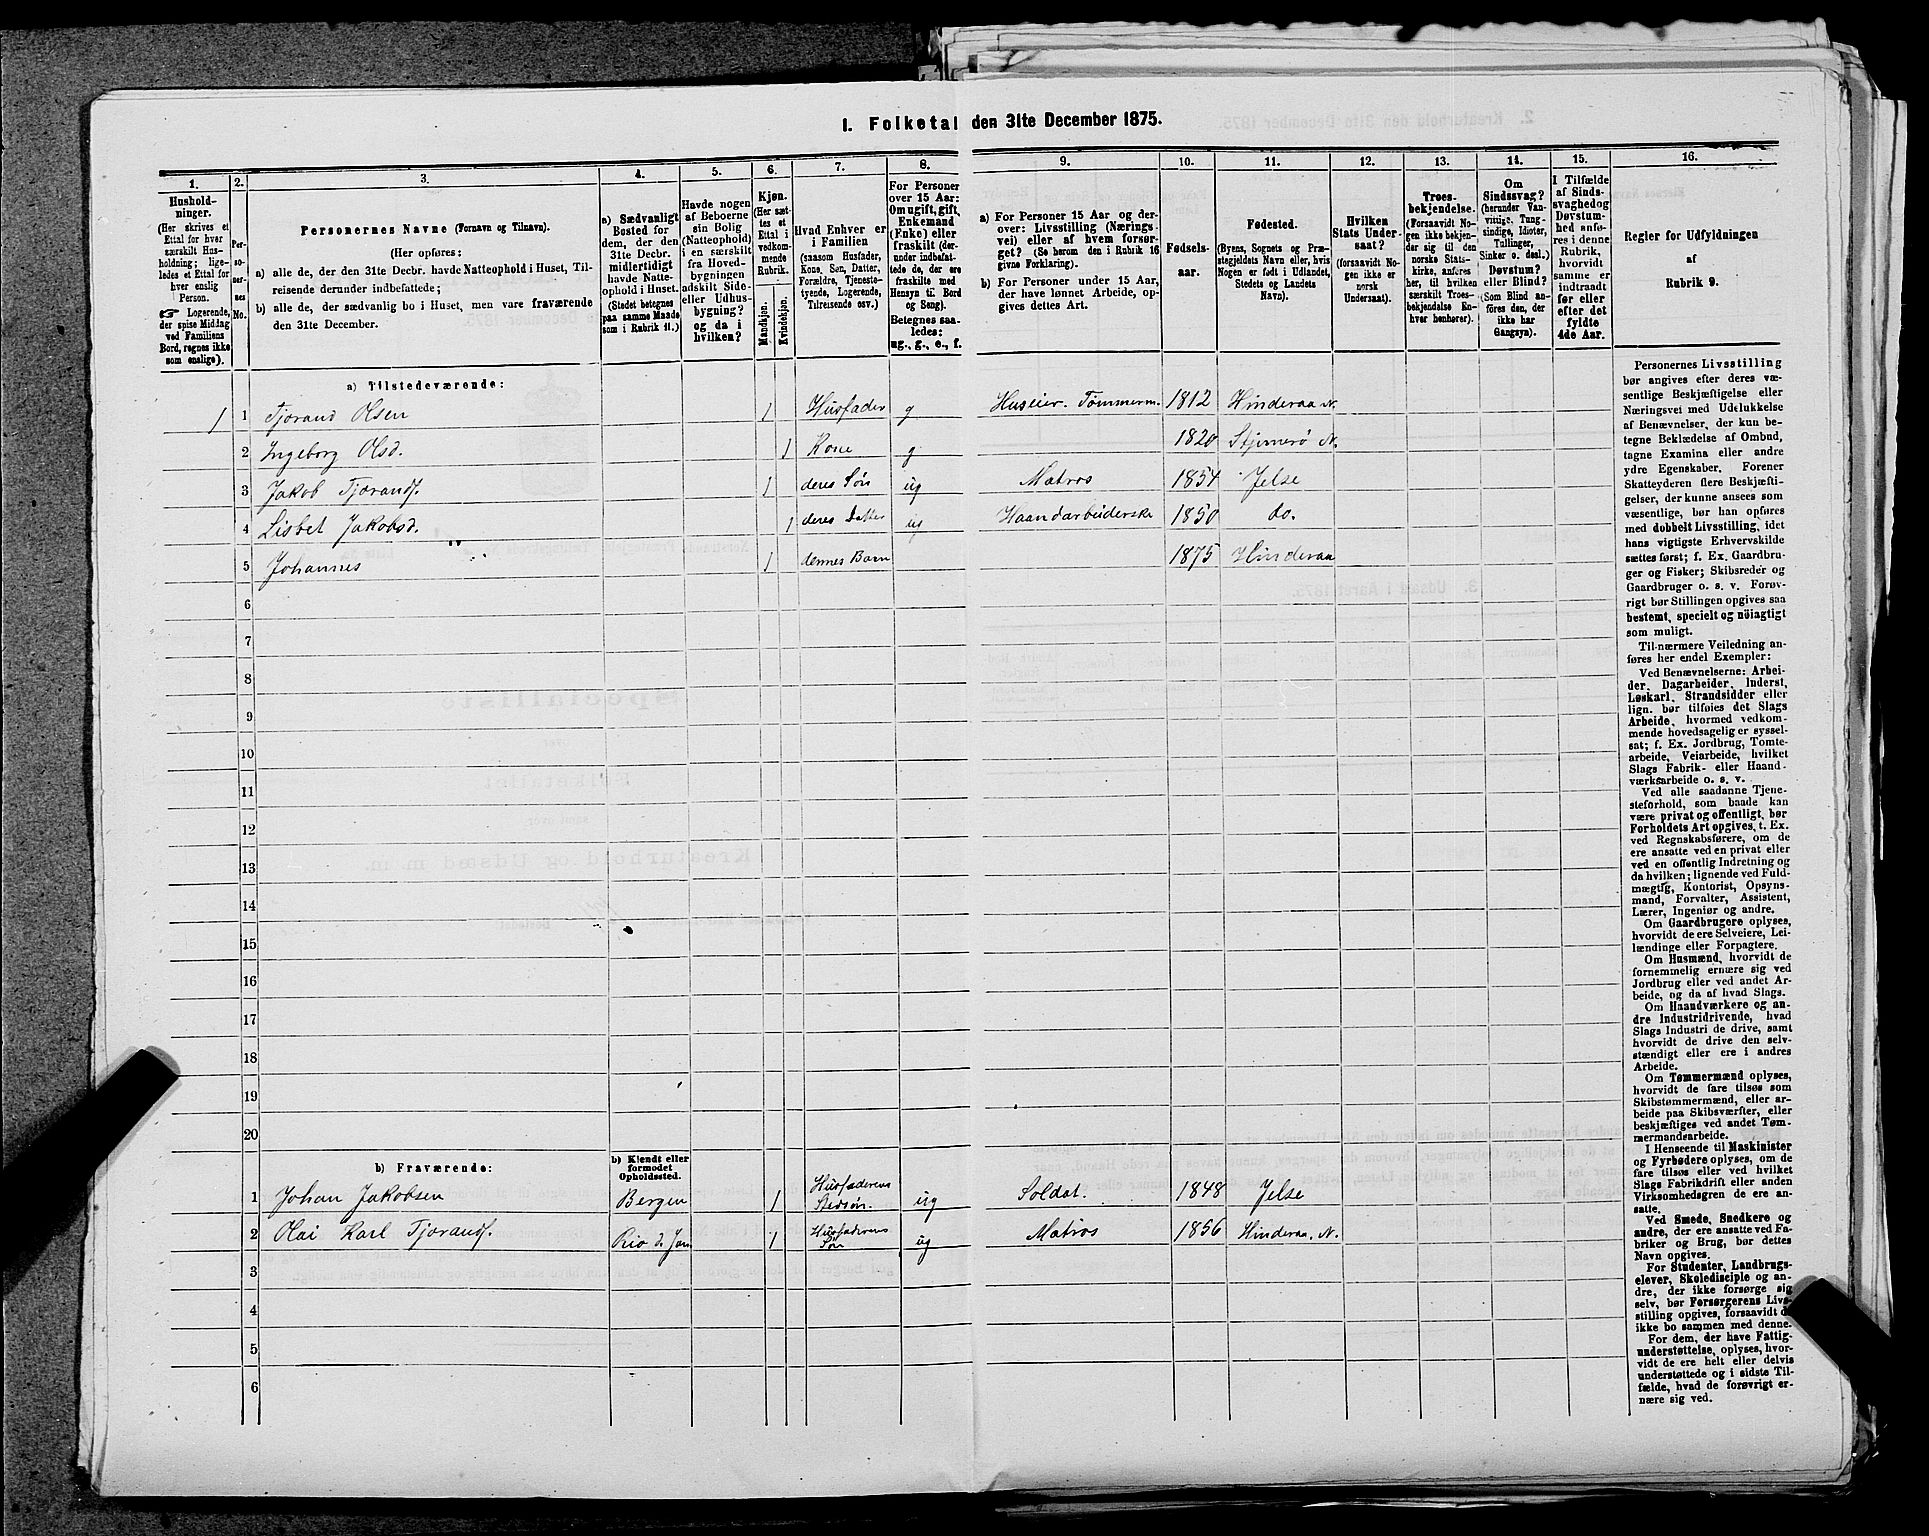 1. Folketal den 31te December 1875.
1. 2. 3. 4. 5. 6. 7. 8. 9. 10. 11. 12. 13. 14. 15. 16.
Hushold-
ninger.
(Her skrives et
Ettal for hver
særskilt Hus-
holdning; lige-
ledes et Ettal for
hver enslig
Person.
☞ Logerende,
der spise Middag
ved Familiens
Bord, regnes ikke
som enslige).
Per-
so-
ner-
nes
No.
Personernes Navne (Fornavn og Tilnavn).
(Her opføres:
a) alle de, der den 31te Decbr. havde Natteophold i Huset, Til-
reisende derunder indbefattede;
b) alle de, der sædvanlig bo i Huset, men vare fraværende
den 31te December.
a) Sædvanligt
Bosted for
dem, der den
31te Decbr.
midlertidigt
havde Natte-
ophold i Huset.
(Stedet betegnes
paa samme Maade
som i Rubrik 11.)
Havde nogen
af Beboerne
sin Bolig
(Natteophold)
i en særskilt
fra Hoved-
bygningen
adskilt Side-
eller Udhus-
bygning?
og da i
hvilken?
Kjøn.
(Her sæt-
tes et
Ettal i
vedkom-
mende
Rubrik.
Mandkjøn.
Kvindekjøn.
Hvad Enhver er
i Familien
(saasom Husfader,
Kone, Søn, Datter,
Forældre, Tjeneste-
tyende, Logerende,
Tilreisende osv.)
For Personer
over 15 Aar:
Om ugift, gift,
Enkemand
(Enke) eller
fraskilt (der-
under indbefat-
tede de, der ere
fraskilte med
Hensyn til Bord
og Seng).
Betegnes saa-
ledes:
ug., g., e., f.
a) For Personer 15 Aar og der-
over: Livsstilling (Nærings-
vei) eller af hvem forsør-
get? (Se herom den i Rubrik 16
givne Forklaring).
b) For Personer under 15 Aar,
der have lønnet Arbeide, op-
gives dettes Art.
Fødsels-
aar.
Fødested.
(Byens, Sognets og Præ-
stegjeldets Navn eller, hvis
Nogen er født i Udlandet,
Stedets og Landets
Navn).
Hvilken
Stats Under-
saat?
(forsaavidt No-
gen ikke er
norsk
Undersaat).
Troes-
bekjendelse.
(Forsaavidt No-
gen ikke bekjen-
der sig til den
norske Stats-
kirke, anføres
her, til hvilken
særskilt Troes-
bekjendelse En-
hver henhører).
Om
Sindssvag?
(herunder Van-
vittige, Tung-
sindige, Idioter,
Tullinger,
Sinker o. desl.)
Døvstum?
eller Blind?
(Som Blind an-
føres den, der
ikke har
Gangsyn).
I Tilfælde
af Sinds-
svaghed og
Døvstum-
hed anfø-
res i denne
Rubrik,
hvorvidt
samme er
indtraadt
før eller
efter det
fyldte
4de Aar.
Regler for Udfyldningen
af
Rubrik 9.
a) Tilstedeværende:
1 1 Tjorand Olsen 1 Husfader g Huseier. Tømmerm. 1812 Hinderaa N.
2 Ingeborg Olsd. 1 Kone g 1820 Stjernerö N.
3 Jakob Tjorandf. 1 deres Søn ug Matros 1854 Jelse
4 Lisbet Jakobsd. 1 deres Datter ug Haandarbeiderske 1850 do.
5 Johannes " " 1 dennes Barn 1875 Hinderaa
6
7
8
9
10
11
12
13
14
15
16
17
18
19
20
b) Fraværende:
b) Kjendt eller
formodet
Opholdssted.
1 Johan Jakobsen Bergen 1 Husfaderens Stedsøn. ug Soldat. 1848 Jelse
2 Olai Karl Tjorandf. Rio d. Jan 1 Husfaderens Søn ug Matros 1856 Hinderaa. N.
3
4
5
6
Personernes Livsstilling
bør angives efter deres væ-
sentlige Beskjæftigelse eller
Næringsvei med Udelukkelse
af Benævnelser, der kun be-
tegne Beklædelse af Ombud,
tagne Examina eller andre
ydre Egenskaber. Forener
Skatteyderen flere Beskjæfti-
gelser, der kunne ansees som
væsentlige, bør han opføres
med dobbelt Livsstilling, idet
hans vigtigste Erhvervskilde
sættes først; f. Ex. Gaardbru-
ger og Fisker; Skibsreder og
Gaardbruger o. s. v. Forøv-
rigt bør Stillingen opgives saa
bestemt, specielt og nøiagtigt
som muligt.
Til nærmere Veiledning an-
føres her endel Exempler:
Ved Benævnelserne: Arbei-
der, Dagarbeider, Inderst,
Løskarl, Strandsidder eller
lign. bør tilføies det Slags
Arbeide, hvormed vedkom-
mende hovedsagelig er syssel-
sat; f. Ex. Jordbrug, Tomte-
arbeide, Veiarbeide, hvilket
Slags Fabrik- eller Haand-
værksarbeide o. s. v.
Ved alle saadanne Tjene-
steforhold, som baade kan
være privat og offentligt, bør
Forholdets Art opgives, t. Ex.
ved Regnskabsførere, om de
ere ansatte ved en privat eller
ved en offentlig Indretning og
da hvilken; lignende ved Fuld-
mægtig, Kontorist, Opsyns-
mand, Forvalter, Assistent,
Lærer, Ingeniør og andre.
Om Gaardbrugere oplyses,
hvorvidt de ere Selveiere, Lei-
lændinge eller Forpagtere.
Om Husmænd, hvorvidt de
fornemmelig ernære sig ved
Jordbrug eller ved andet Ar-
beide, og da af hvad Slags.
Om Haandværkere og an-
dre Industridrivende, hvad
Slags Industri de drive, samt
hvorvidt de drive den selv-
stændigt eller ere i andres
Arbeide.
Om Tømmermænd oplyses,
hvorvidt de fare tilsøs som
Skibstømmermænd, eller ar-
beide paa Skibsværfter, eller
beskjæftiges ved andet Tøm-
mermandsarbeide.
I Henseende til Maskinister
og Fyrbødere oplyses, om de
fare tilsøs eller ved hvilket
Slags Fabrikdrift eller anden
Virksomhedsgren de ere an-
satte.
Ved Smede, Snedkere og
andre, der ere ansatte ved Fa-
briker og Brug, bør dettes
Navn opgives.
For Studenter, Landbrugs-
elever, Skoledisciple og an-
dre, der ikke forsørge sig
selv, bør Forsørgerens Livs-
stilling opgives, forsaavidt de
ikke bo sammen med denne.
For dem, der have Fattig-
understøttelse, oplyses, hvor-
vidt de ere helt eller delvis
understøttede og i sidste Til-
fælde, hvad de forøvrigt er-
nære sig ved.